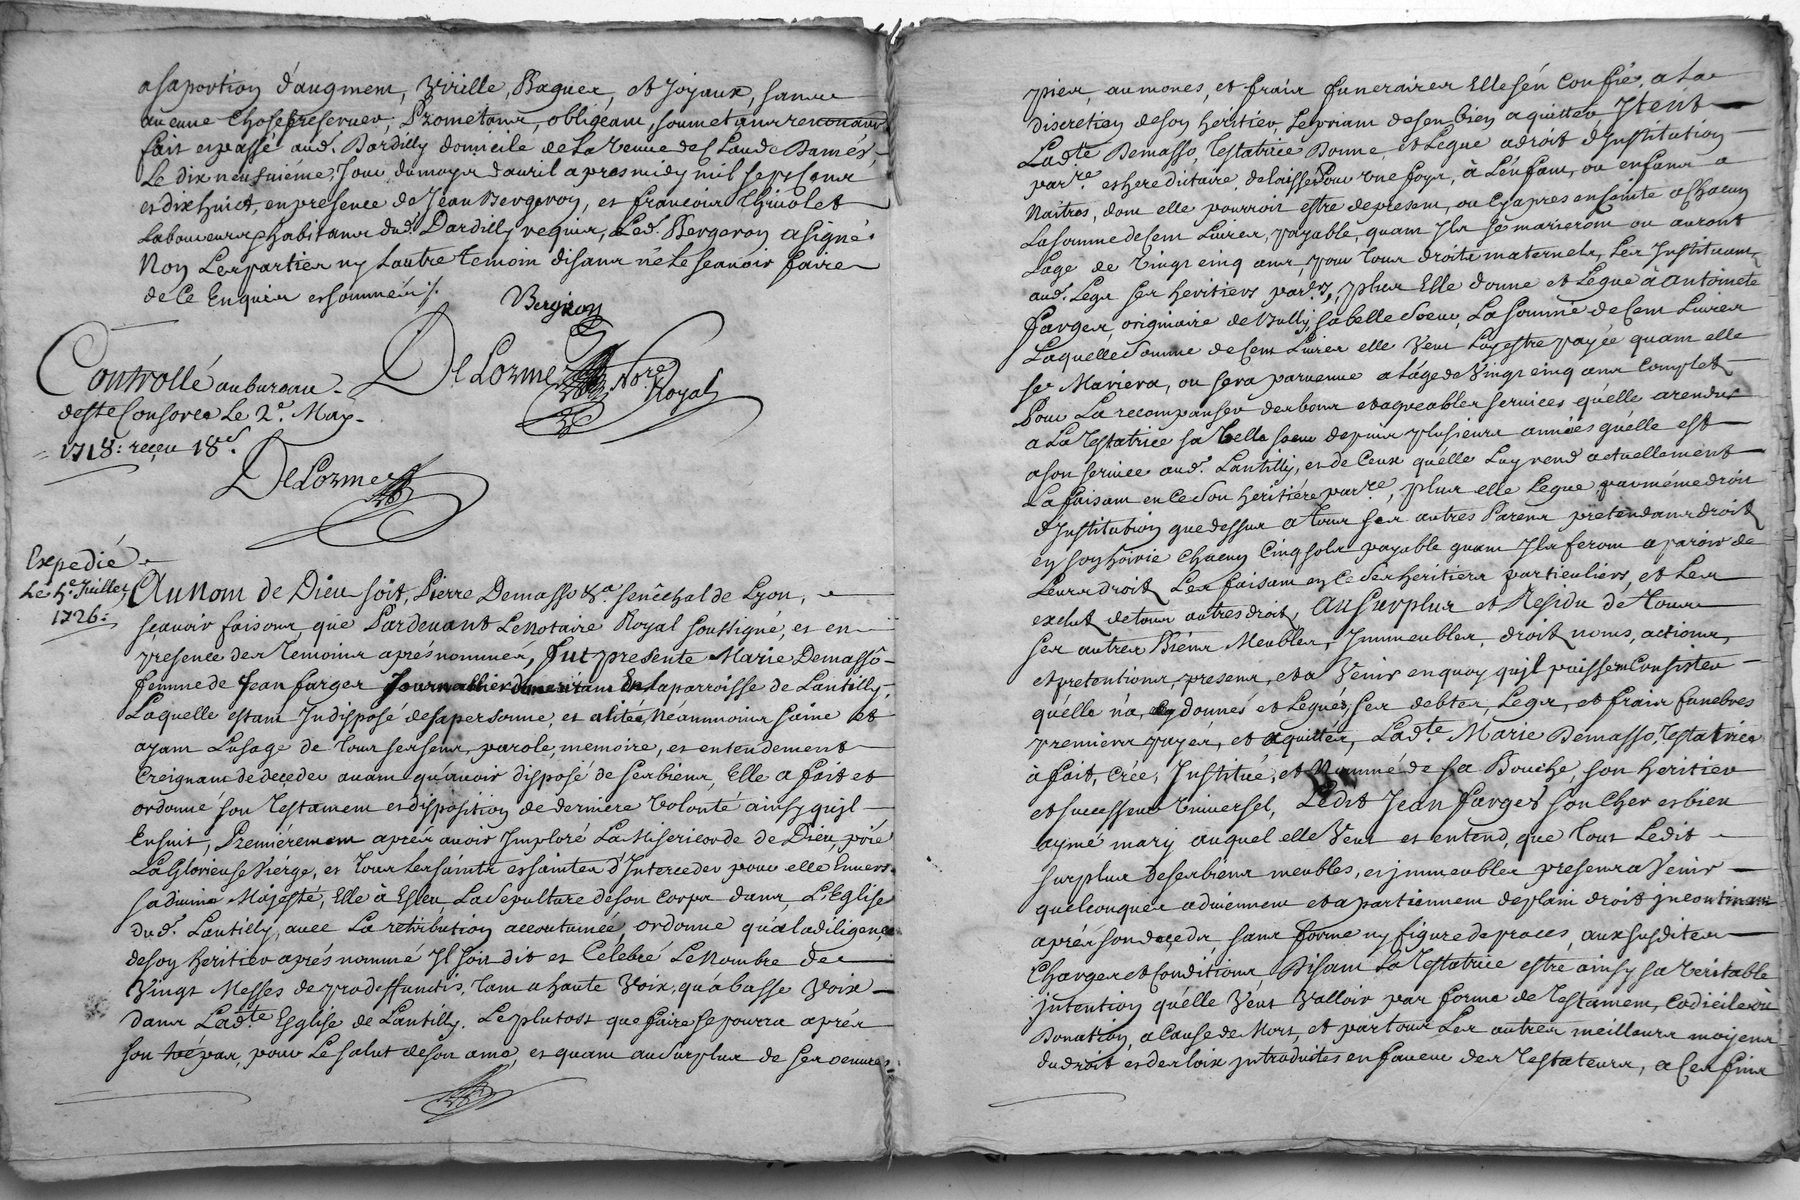 a sa portion d'augment, Virille, Bagues, et Joyaux, sans
aucune Chose reserver, Prometans, obligeans, soumetans renonans
fait et passé aud. Dardilly domicile de la veuve de Claude Dames,
Le dix neufuiéme, Jour du moys d'auril apres midy mil sept cens
et dix huict, en presence de Jean Bergeron, et francois Thiuolet
Laboureurs habitans dud. Dardilly requis, Led. Bergeron a signé
Non Les parties ny Lautre temoin disans ne le scauoir faire
de ce Enquis et sommés ./.
Bergiron
De Lorme
No.re
Royal
Controllé au bureau
deste Consorce Le 2.e May
1718: reçeu 18 s.
De Lorme
Expedié
Le 4.e Juillet
1726:
Au Nom de Dieu soit, Pierre Demasso &.a senêchal de Lyon,
scauoir faisons que Pardeuant Le Notaire Royal soussigné, et en
presence des temoins apres nommes, fut presente Marie Demassô
femme de Jean farges Journallier demeurant En la parroisse de Lantilly,
Laquelle estant Indisposé de sa personne, et alitée, Néanmoins saine et
ayam Lusage de tous ses sens, parole, memoire, et entendement
Creignam de deçeder auam qu'auoir disposé de ses biens, Elle a fait et
ordonné son Testament et disposition de derniere Volonté ainsy qu'jl
Ensuit, Premiérement aprés auoir Imploré La Misericorde de Dieu, prié
La Glorieuse Viérge, et tous les saints et saintes d'Interceder pour elle Enuers
sa diuine Majesté, Elle à Esleu La Sepulture de son Corps dans L'Eglise
dud. Lantilly, auec La retribution accoutumée, ordonne qu'à la diligence
de son heritier aprés nommé Jl soit dit et Célebré Le Nombre de
Vingt Messes de pro deffunctis, tam a haute Voix, qu'à basse Voix
dans Lad.te Esglise de Lantilly. Le plutost que faire se pourra aprés
son trépas, pour Le salut de son ame, et quam au Surplus de ses oeuures
pies, aumones, et frais funeraires Elle s'én Confie, a la
discretion de son heritier, Le priam de son bien aquitter, Jtent
Lad.te Demasso, Testatrice Donne, et Legue a droit d'Jnstitution
par.re et heredictaire, delaisse Pour une foys, à L'enfant, ou enfans a
Naitres, dom elle pourroit estre de present, ou Cy apres enseinte a Chacun
La somme de Cent Liures, payable, quam Jls se marierom ou auront
Lage de Vingt cinq ans, pour tous droits maternels, Les Jnstituam,
aud. Legs ses heritiers par.rs, plus Elle donne et Légue à Antoinete
farges, originaire de Bully, sa belle soeur, La Somme de Cent Liures
Laquelle Somme de Cent Liures elle Veut Luy estre payée quam elle
se Mariera, ou sera paruenue a Lage de Vingt cinq ans Complets
Pour La recompanser des bons et agreables services qu'elle a rendus
a La Testatrice sa belle soeur depuis plusieurs années qu'elle est
a son seruice aud. Lantilly, et de Ceux qu'elle Luy rend actuellement
La faisam en Ce Son heritiére par.re, plus elle Legue par méme droit
d'Jnstitution que dessus a tous ses autres Parens pretendans droit
en son hoirie Chacun Cinq sols payable quam Jls ferom aparoir de
Leurs droits Les faisam en Ce Ses heritiers particuliers, et Les
exclut de tous autres droits, Au Surplus et Residu de tous
Ses autres Biens Meubles, Jmmeubles, droits, noms, actions,
et pretentions, presens, et a Venir en quoy qu'jl puissem Consister
qu'elle n'a, cy donnés et Legués, ses debtes, Legs, et frais funebres
premiers payés, et aquittés, Lad.te Marie Demasso, Testatrice
à fait, crée, Jnstitué, et Nommé de sa Bouche, son heritier
et successeur Vniuersel, Ledit Jean farges son Cher et bien
aymé mary auquel elle Veut et entend, que tous Ledit
surplus de ses biens meubles, et jmmeubles presens a Venir
quelconques aduiennent et apartiennent de plain droit jncontinam
aprés son decéds, sans forme ny figure de proces, aux susdites
Charges et Conditions, Disam La Testatrice estre ainsy sa veritable
jntention qu'elle Veut Valloir par forme de testament, Codicile ou
Donation, a Cause de Mort, et par tous Les autres meilleurs moyens
du droit et des loix jntroduites en faueur des Testateurs, a Ces fins